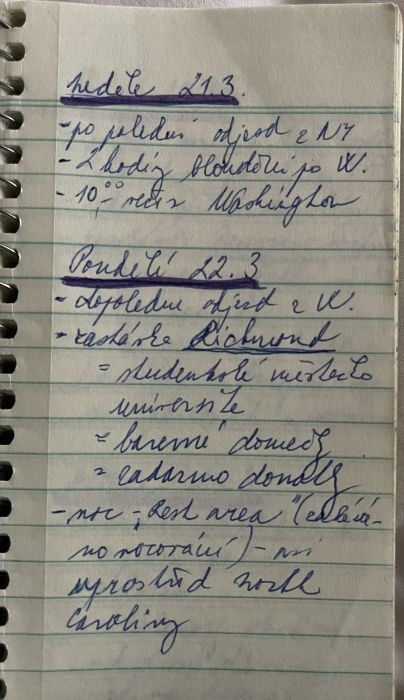 neděle 21.3.
- po poledni odjezd z NY
- 2 hodiny bloudění po W.
- 10,00 večer Washington
Pondělí 22.3
- dopoledne odjezd z W.
- zastávka Richmond
= studentské městečko
university
= barevné domečky
= zadarmo donuty
- noc - "Rest area" (zakázá-
no nocování) - asi
uprostřed North
Caroliny